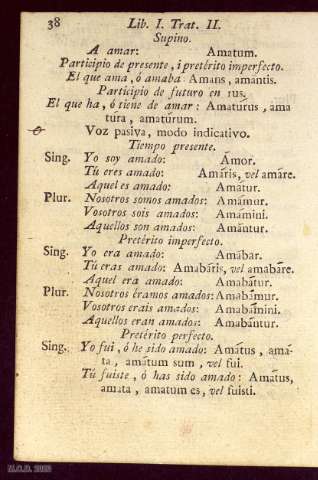 38 Lib. I. Trat. II.
Supino.
A amar: Amatum.
Participio de presente, i pretérito imperfecto.
El que ama, ó amaba Amans, amantis.
Participio de futuro en rus.
El que ha, ó tiene de amar: Amatúrus, ama
túra, amatúrum.
Voz pasiva, modo indicativo.
Tiempo presente.
Sing. Yo soy amado: Ámor.
Tú eres amado: Amáris, vel amáre.
Aquel es amado: Amátur.
Plur. Nosotros somos amados: Amámur.
Vosotros sois amados: Amámini.
Aquellos son amados: Amántur.
Pretérito imperfecto.
Sing. Yo era amado: Amábar.
Tú eras amado: Amabáris, vel amabáre.
Aquel era amado: Amabátur.
Plur. Nosotros éramos amados: Amabámur.
Vosotros erais amados: Amabámini.
Aquellos eran amados: Amabántur.
Pretérito perfecto.
Sing. Yo fui, ó he sido amado: Amátus, amá-
ta, amátum sum, vel fui.
Tú fuiste, ó has sido amado: Amátus,
amáta, amatum es, vel fuisti.